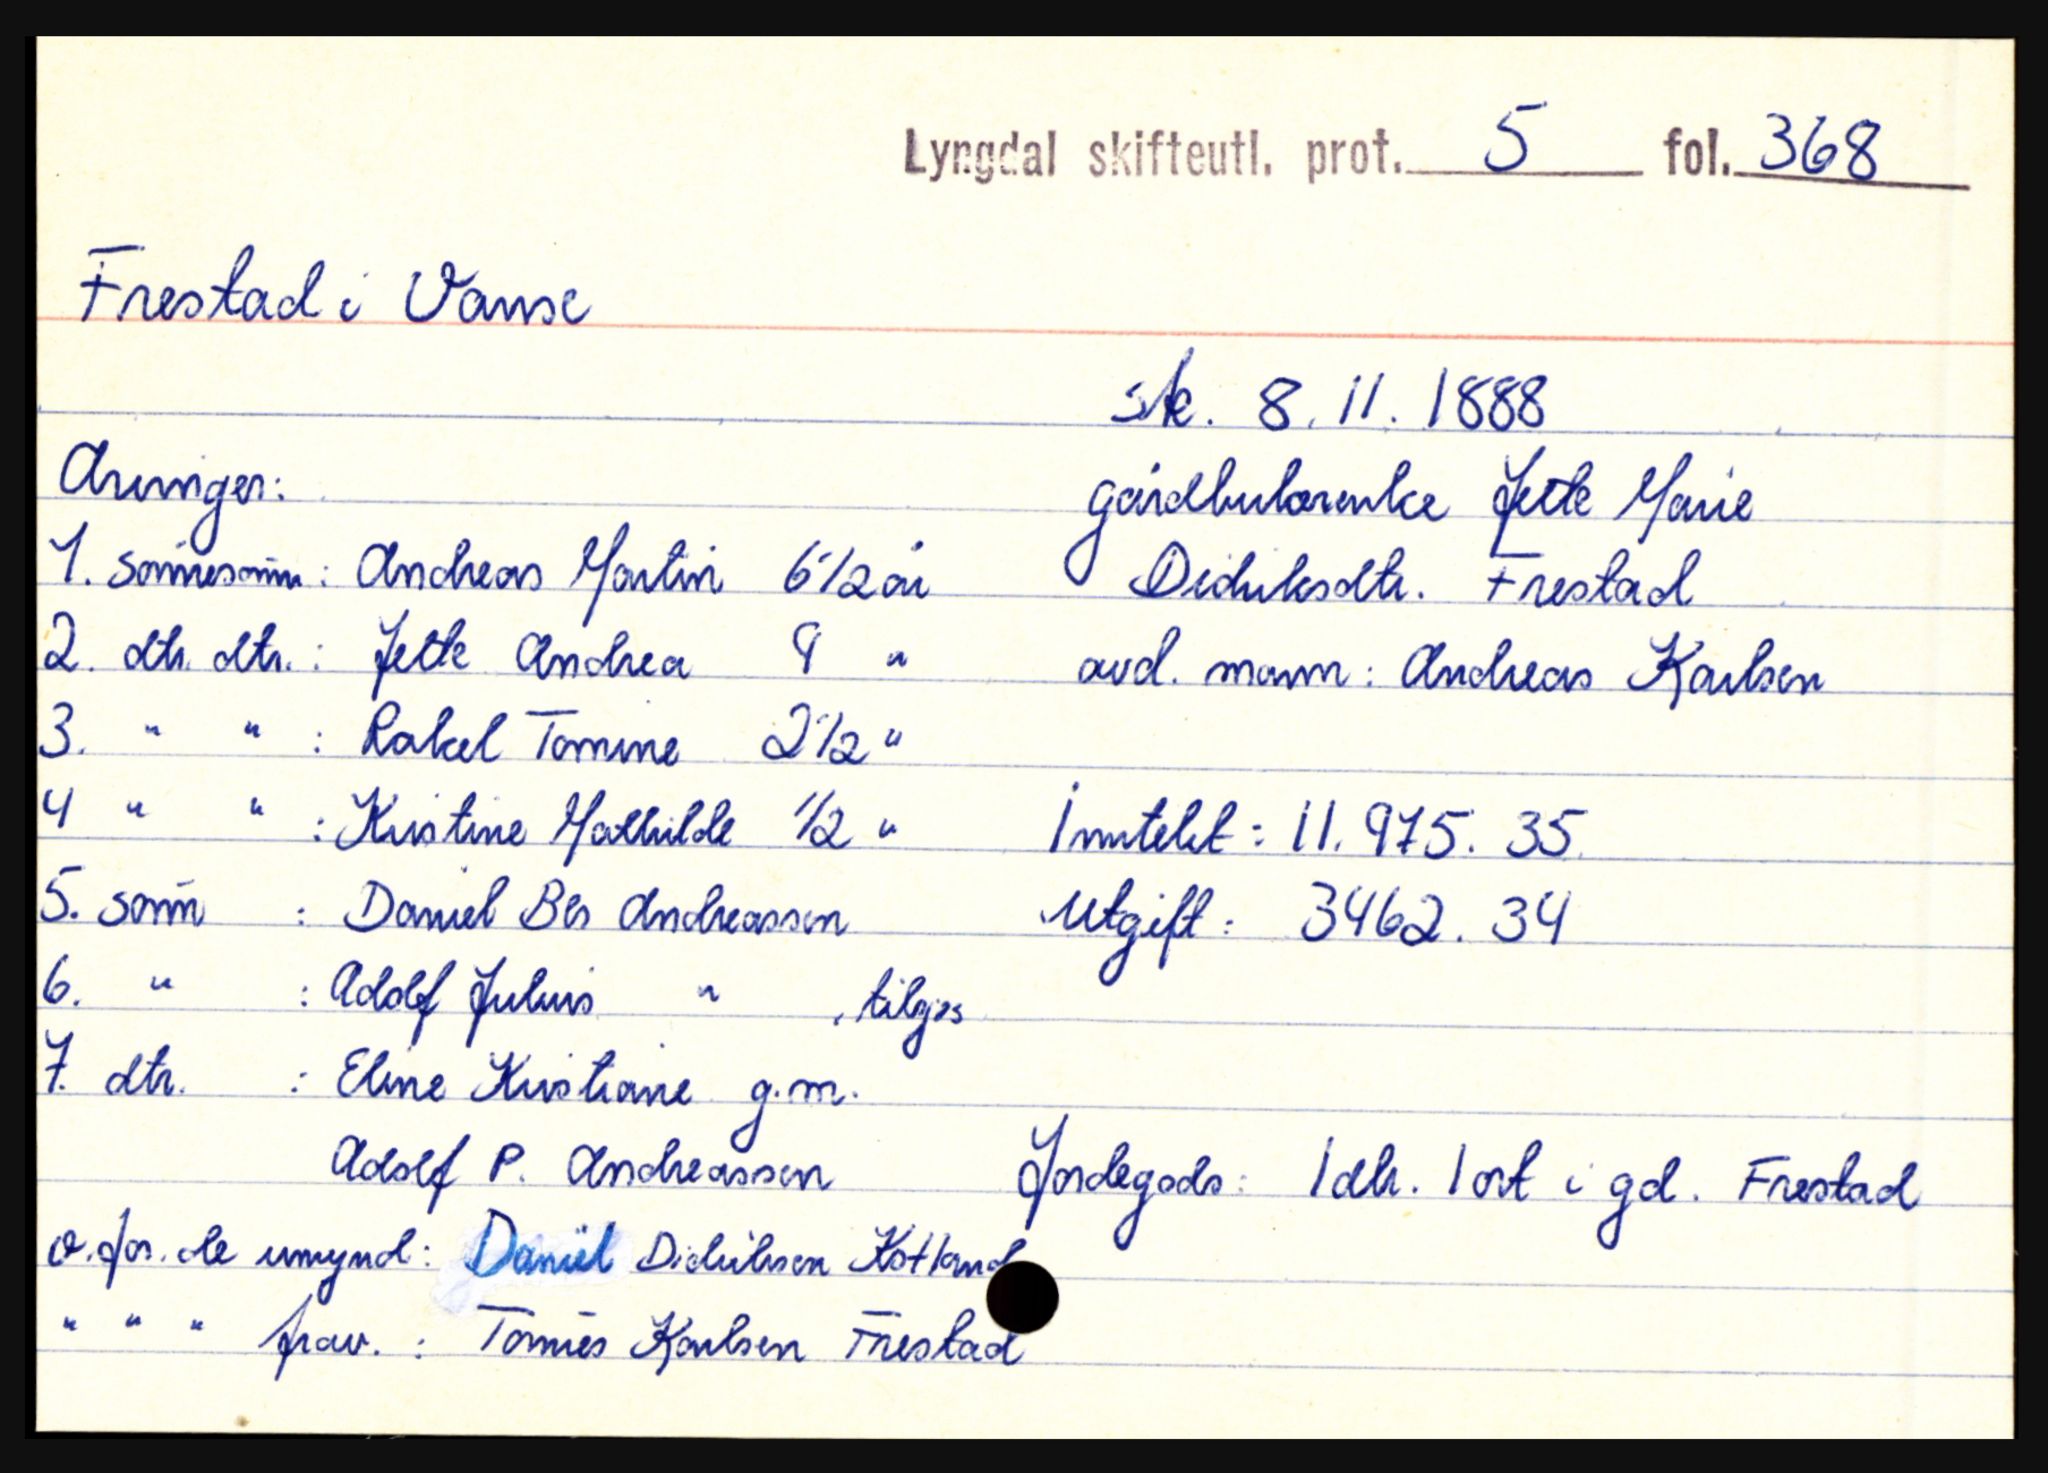 Lyngdal skifteutl. prot. 5 fol. 368
Frestad i Vanse
sk. 8. 11. 1888
Arvinger:
gårdbrukerenke Jette Marie
1. sønnesønn: Andreas Martin 6 1/2 år
Didriksdtr. Frestad
2. dtr. dtr.: Jette Andrea 9 "
avd. mann: Andreas Karlsen
3. " " : Rakel Tomine 2 1/2 "
4 " " : Kristine Mathilde 1/2 "
Inntekt: 11.975.35
5. sønn : Daniel Bes Andreassen
Utgift: 3462.34
6. " : Adolf Julius " , tilgjs
7. dtr. : Eline Kristiane g.m.
Adolf P. Andreassen
Jordegods: 1 dlr. 1 ort i gd. Frestad
v. for. de umynd: Daniel Didriksen Kotland
" " " frav. : Tønnes Karlsen Frestad